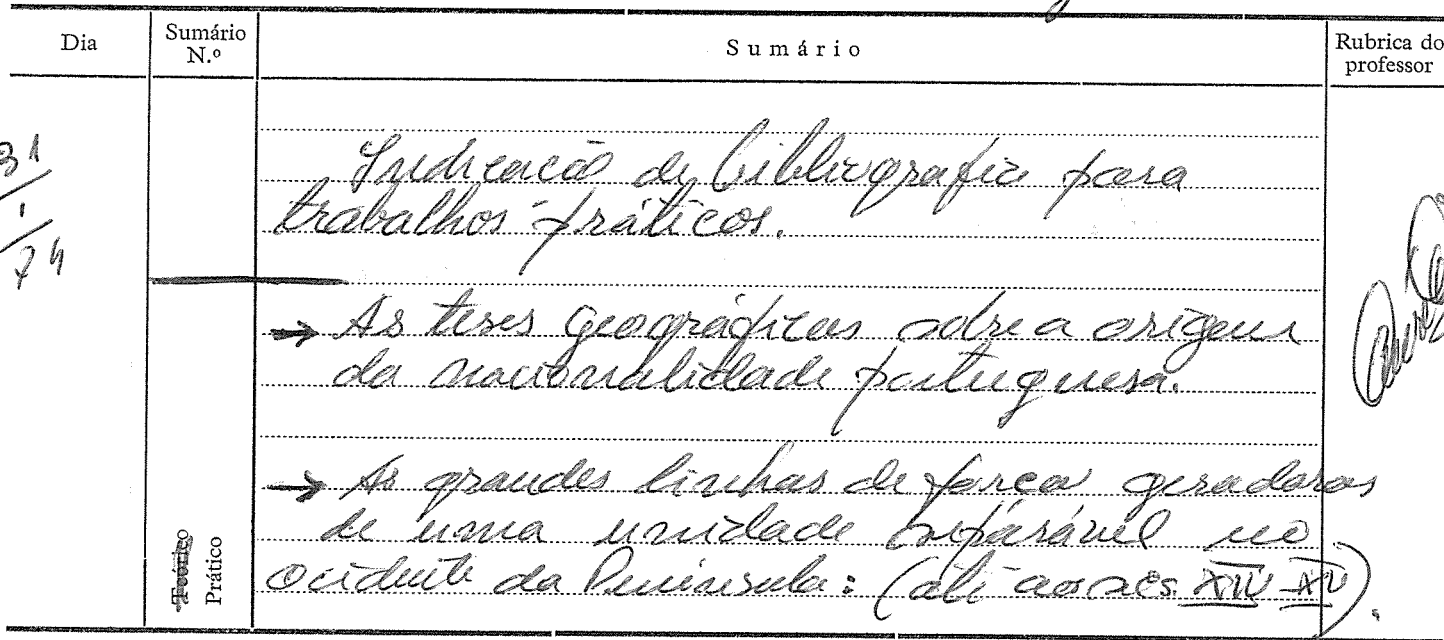 Dia
Sumário N.º
Sumário
Rubrica do professor
31
1
74
Indicação de bibliografia para
trabalhos práticos.
→ As teses geográficas sobre a origem
da nacionalidade portuguesa.
→ As grandes linhas de força geradoras
de uma unidade no
ocidente da Península: (até aos sécs. XIV-XV).
Teórico
Prático